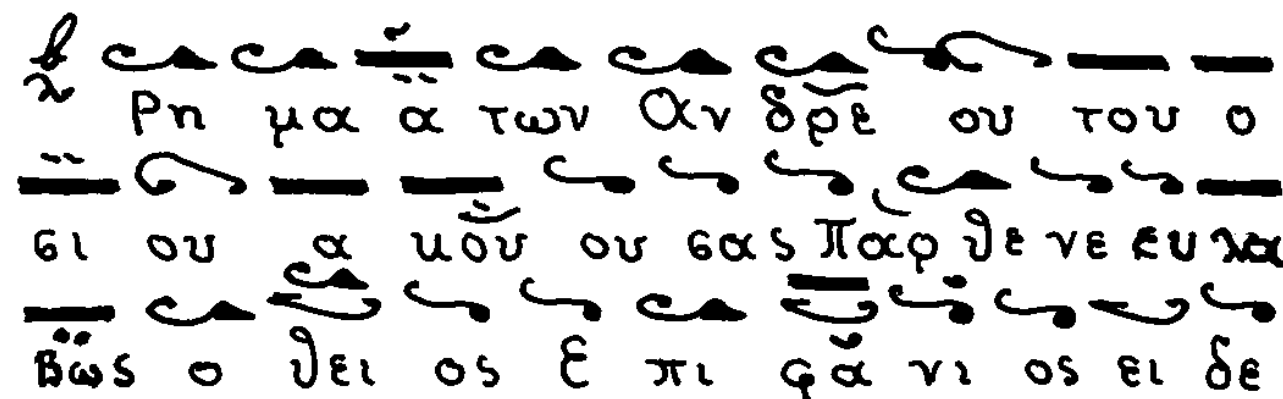 Ρη μα α των Αν δρε ου του ο
σι ου α κου ου σας Παρ θε νε ευ λα
βως ο θει ος Ε πι φα νι ος ει δε